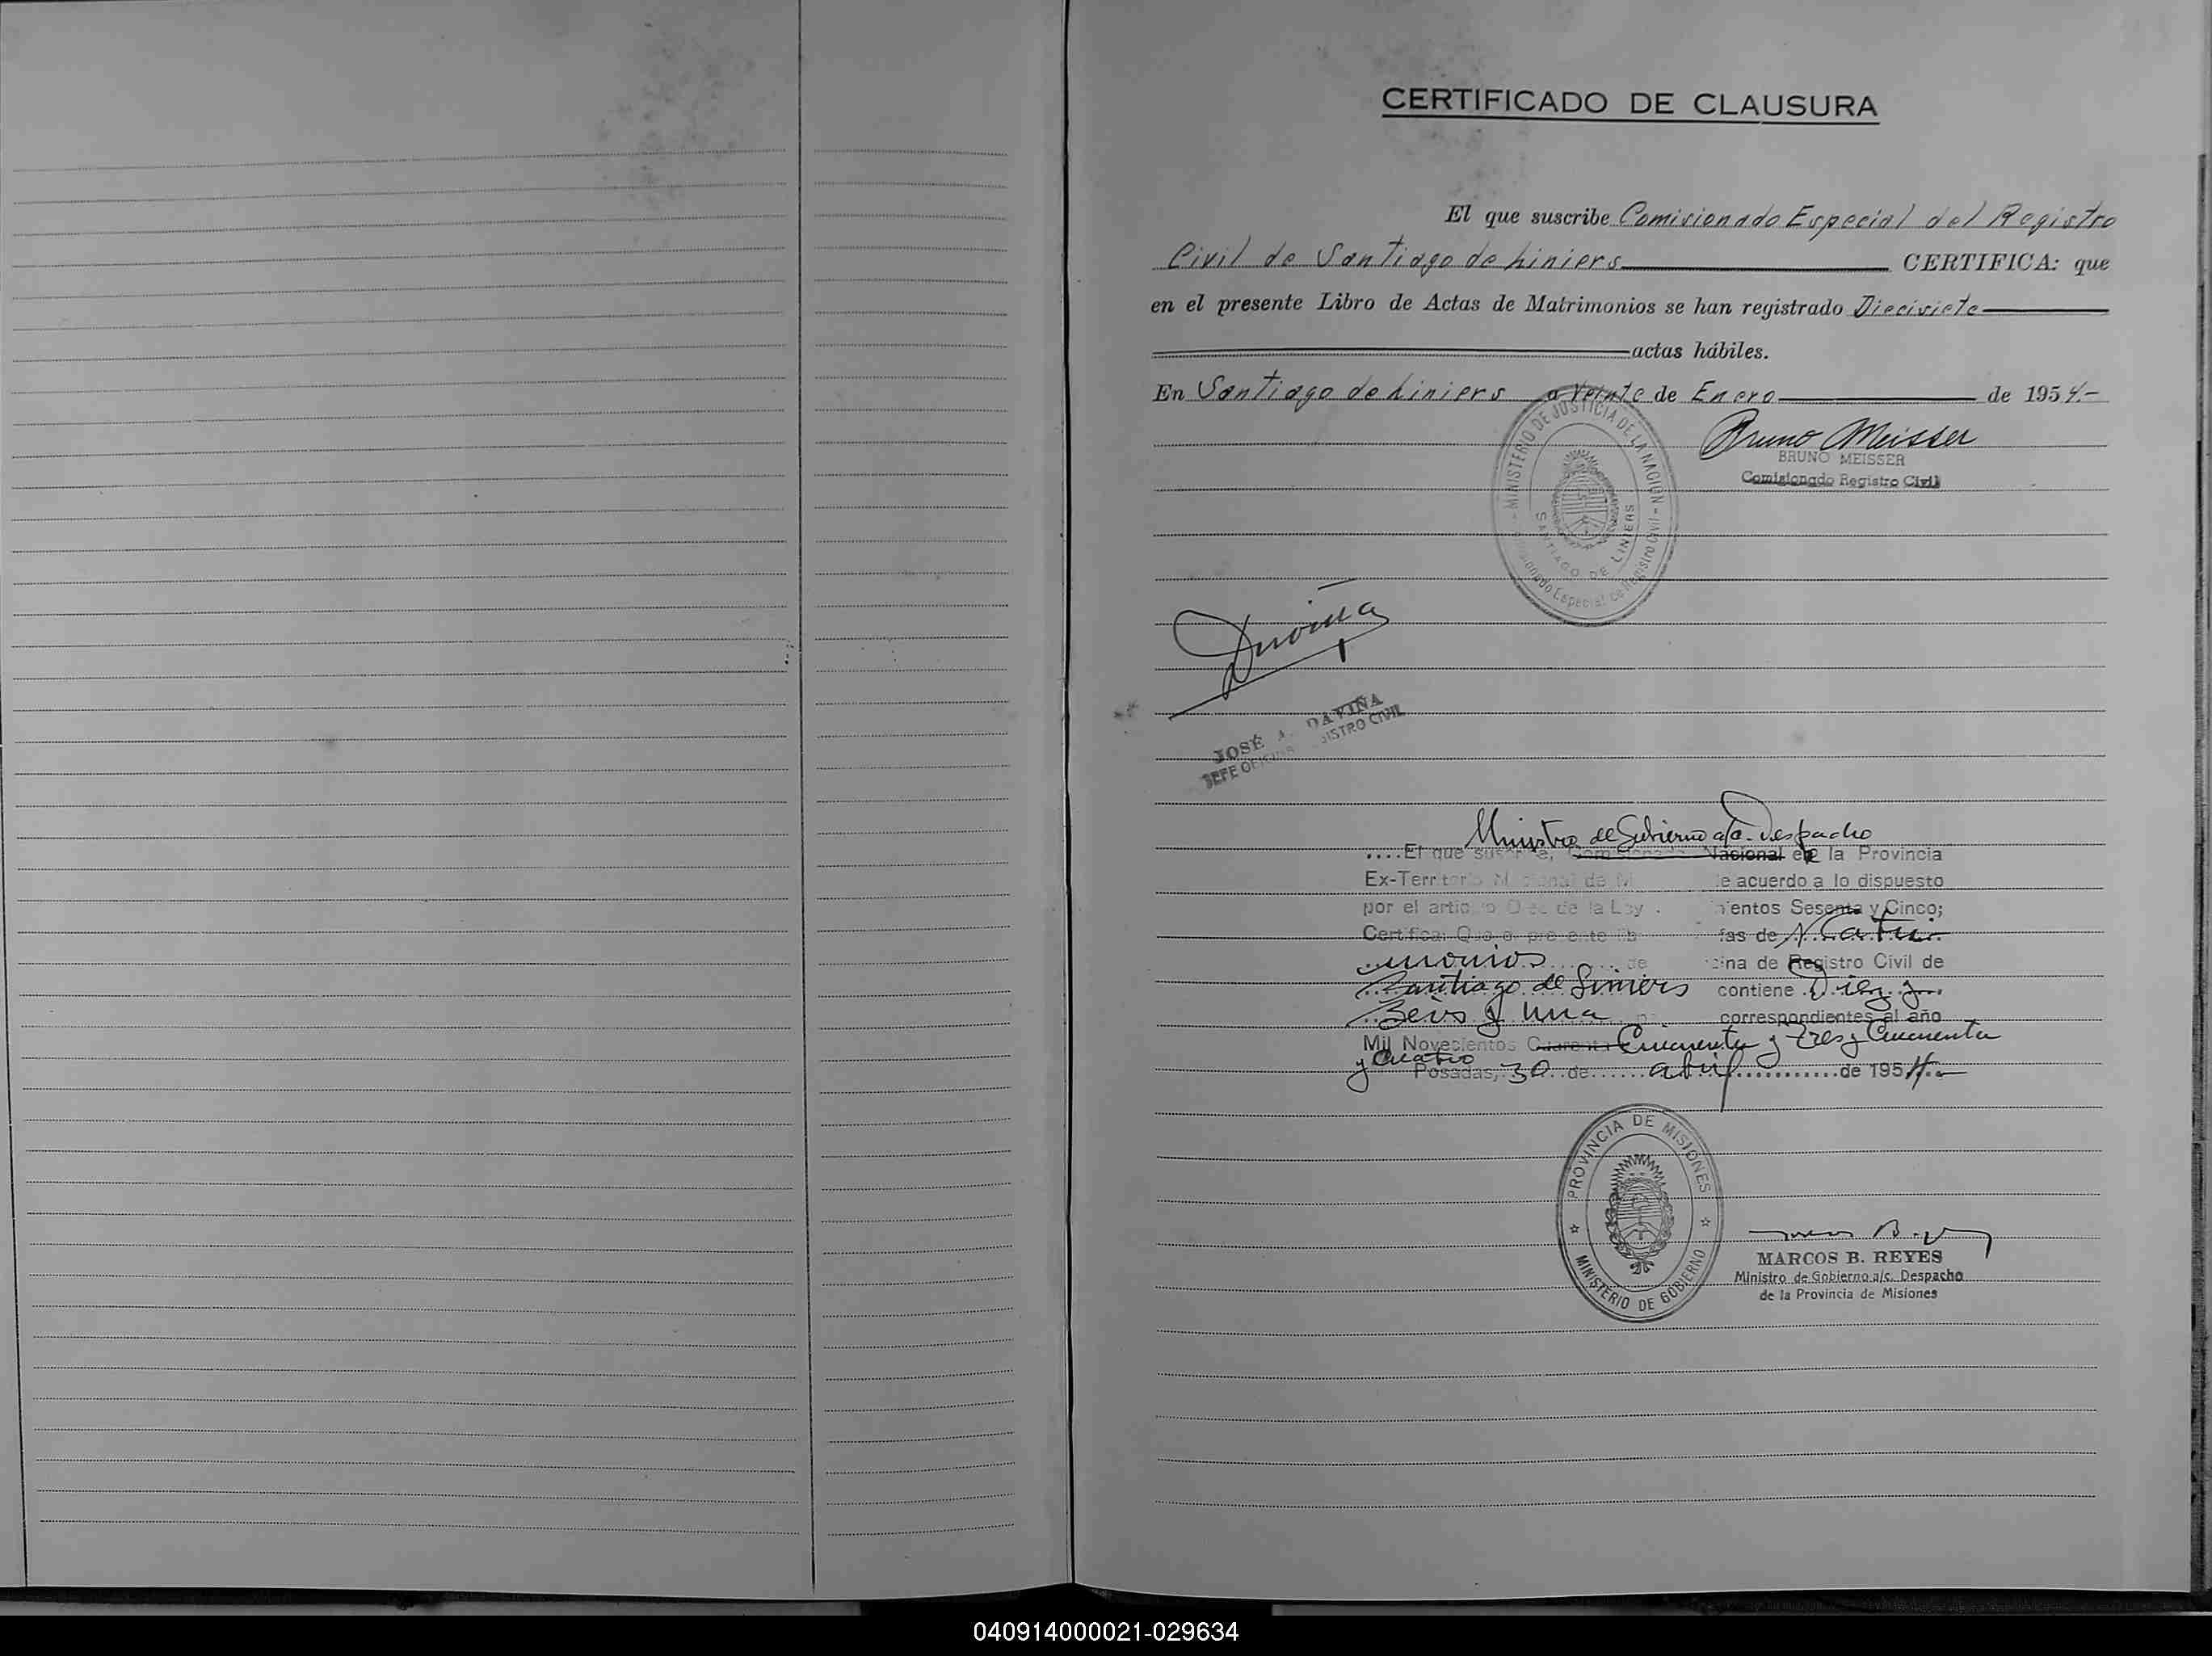 CERTIFICADO DE CLAUSURA
El que suscribe Comisionado Especial del Registro
Civil de Santiago de Liniers CERTIFICA: que
en el presente Libro de Actas de Matrimonios se han registrado Diecisiete
actas hábiles.
En Santiago de Liniers a Veinte de Enero de 1954.-
Bruno Meisser
BRUNO MEISSER
Comisionado Registro Civil
MINISTERIO DE JUSTICIA DE LA NACIÓN
Especial de Registro Civil
SANTIAGO DE LINIERS
Daviña
JOSÉ A. DAVIÑA
JEFE
Ministro de Gobierno a/c. Despacho
....El que Nacional de la Provincia
Ex-Territorio de acuerdo a lo dispuesto
por el de la Ley Sesenta y Cinco;
Certifica: Que de Matri
monios de Registro Civil de
Santiago de Liniers contiene Diez y
Seis y una correspondientes al año
Mil Novecientos Cuarenta Cincuenta y Tres y Cincuenta
y Cuatro
Posadas, 30 de abril de 1954.-
PROVINCIA DE MISIONES
MINISTERIO DE GOBIERNO
MARCOS B. REYES
Ministro de Gobierno a/c. Despacho
de la Provincia de Misiones
040914000021-029634